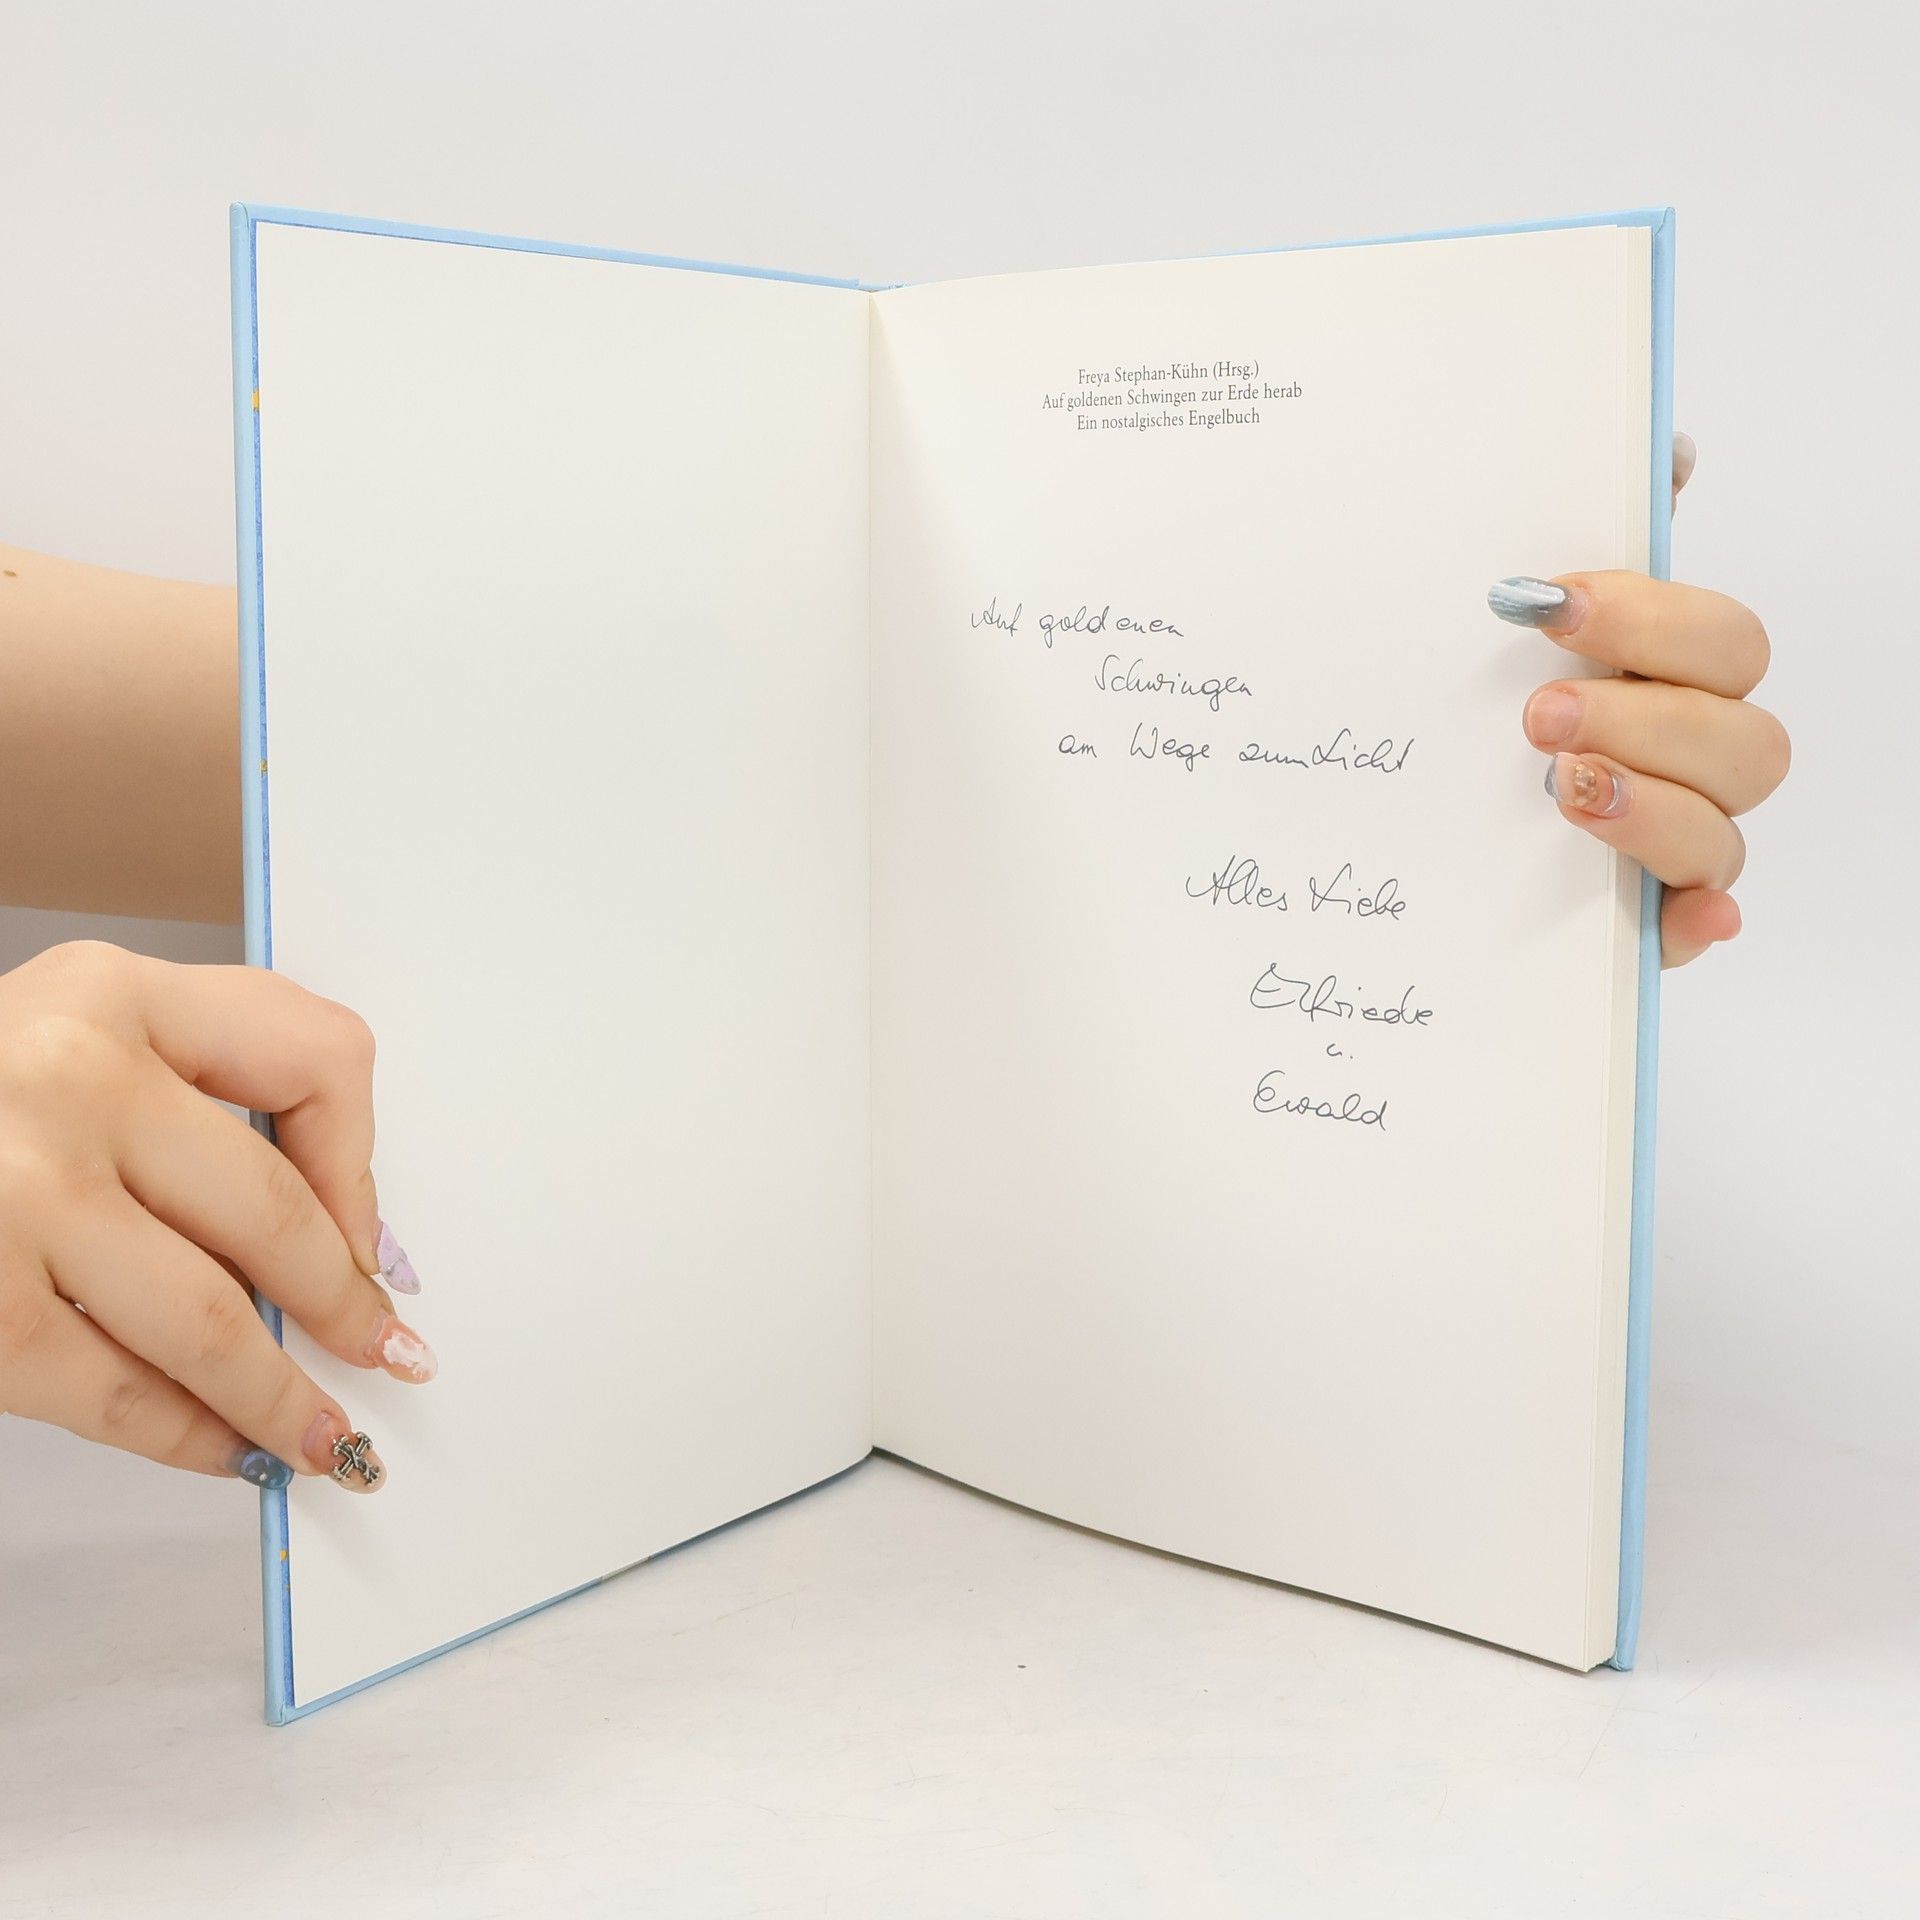 Freya Stephan-Kühn (Hrsg.)
Auf goldenen Schwingen zur Erde herab
Ein nostalgisches Engelbuch
Auf goldenen
Schwingen
am Wege zum Licht
Alles Liebe
Elfriede
u.
Ewald